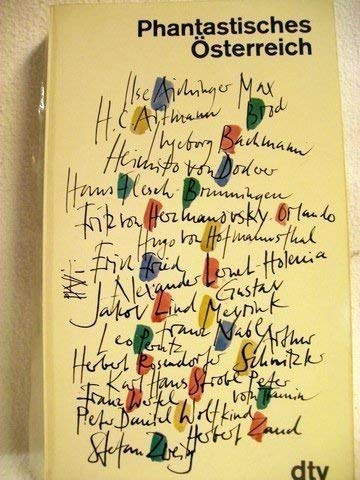 Phantastisches
Österreich
Ilse Aichinger Max
H.C. Artmann Brod
Ingeborg Bachmann
Heimito von Doderer
Hans Flesch-Brunningen
Fritz von Herzmanovsky-Orlando
Hugo von Hofmannsthal
Erich Fried
Alexander Lernet Holenia
Jakov Lind Gustav
Meyrink
Leo Perutz Franz Nabl Arthur
Herbert Rosendorfer Schnitzler
Karl Hans Strobl Peter
Franz Werfel von Tramin
Peter Daniel Wolfkind
Herbert Zand
Stefan Zweig
dtv